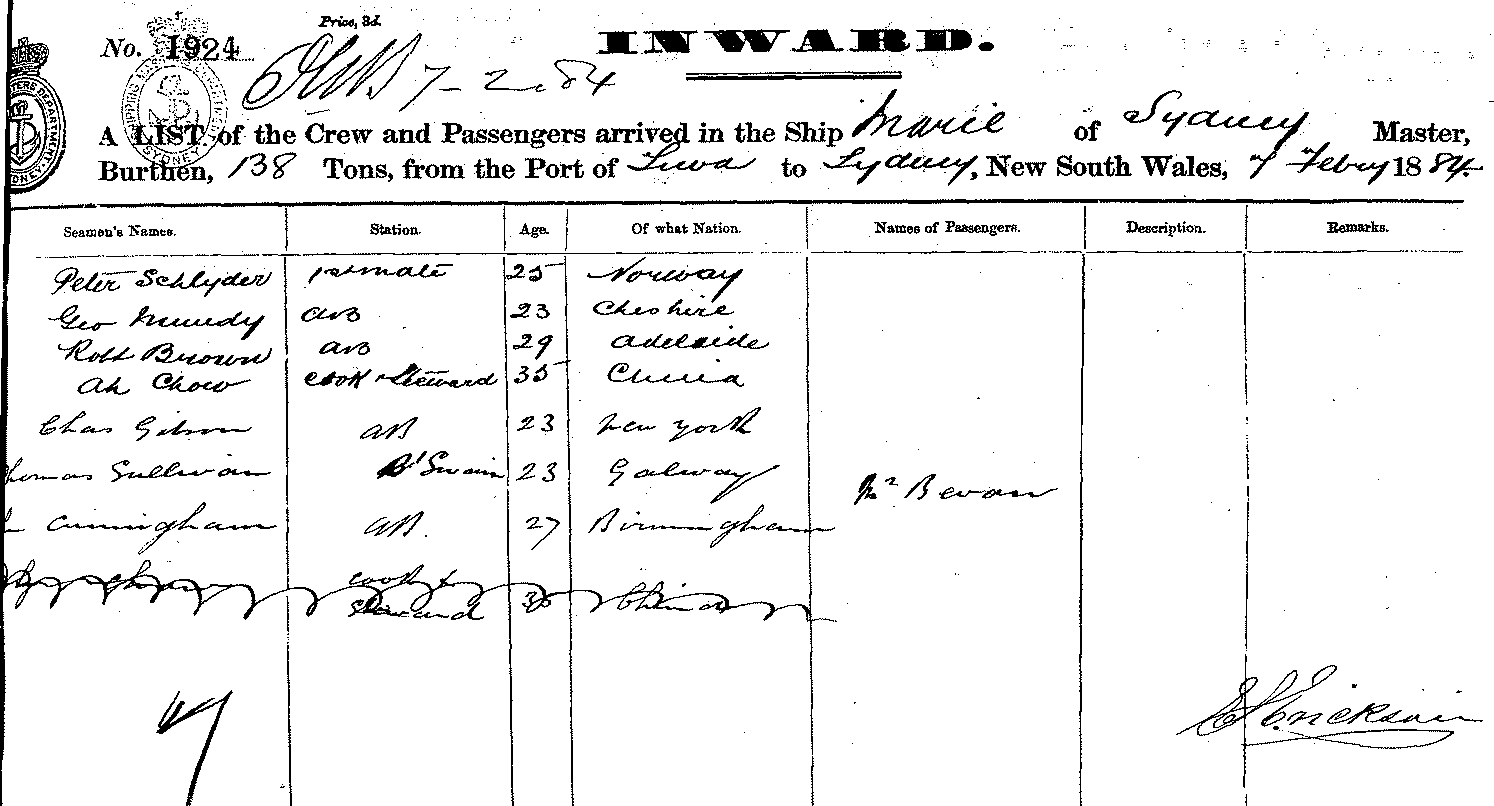 Price, 3d.
No. 1924
INWARD.
7-2.84
A LIST of the Crew and Passengers arrived in the Ship Marie of Sydney Master,
Burthen, 138 Tons, from the Port of Suva to Sydney, New South Wales, 7 Febry 1884.
Seamen's Names. Station. Age. Of what Nation. Names of Passengers. Description. Remarks.
Peter Schlyder 1st mate 25 Norway
Geo Mundy AB 23 Cheshire
Robt Brown AB 29 Adelaide
Ah Chow Cook & Steward 35 China
Chas Gibson AB 23 New York
Thomas Sullivan B'Swain 23 Galway
Mr Bevan
Cunningham AB. 27 Birmingham
Cook &
Steward 35 China
7
Erickson